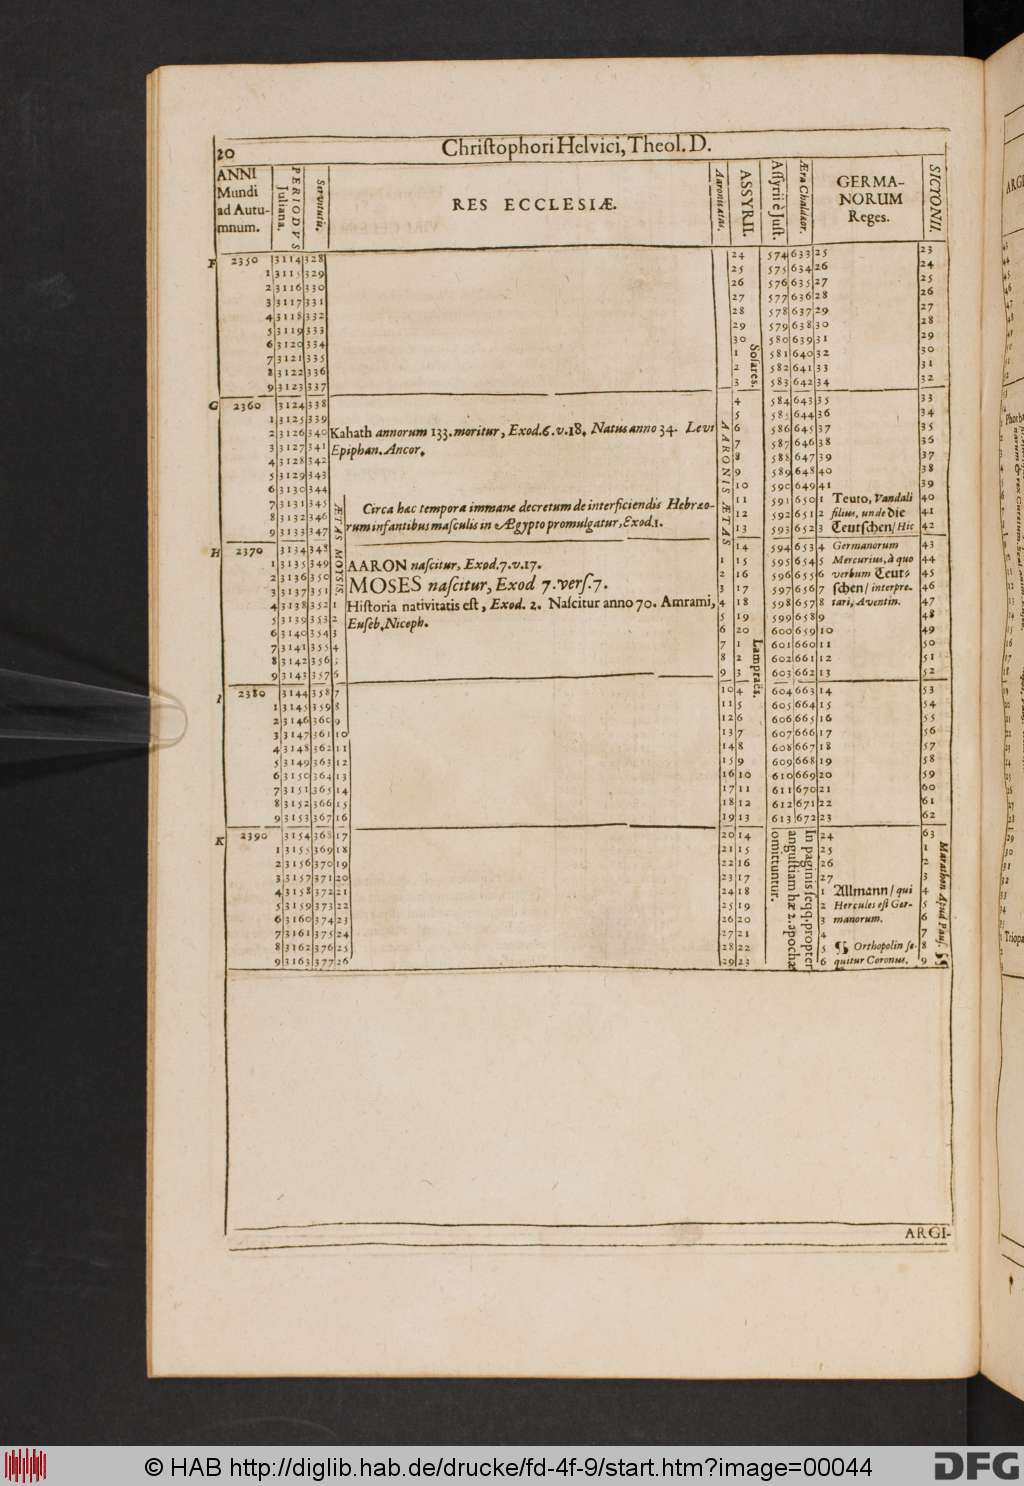 20
Chriſtophori Helvici, Theol. D.
ANNI Mundi ad Autu-mnum.
PERIODVS Juliana.
Servitutis.
RES ECCLESIÆ.
Aaronis ætas.
ASSYRII.
Aſſyrii è Juſt.
Æra Chaldæor.
GERMA-NORUM Reges.
SICYONII.
F 2350 3114 328 24 574 633 25 23
1 3115 329 25 575 634 26 24
2 3116 330 26 576 635 27 25
3 3117 331 27 577 636 28 26
4 3118 332 28 578 637 29 27
5 3119 333 29 579 638 30 28
6 3120 334 30 580 639 31 29
7 3121 335 1 Soſares. 581 640 32 30
8 3122 336 2 582 641 33 31
9 3123 337 3 583 642 34 32
G 2360 3124 338 4 584 643 35 33
1 3125 339 AARONIS ÆTAS 5 585 644 36 34
2 3126 340 Kahath annorum 133. moritur, Exod. 6. v. 18. Natus anno 34. Levi 6 586 645 37 35
3 3127 341 Epiphan. Ancor. 7 587 646 38 36
4 3128 342 8 588 647 39 37
5 3129 343 9 589 648 40 38
6 3130 344 10 590 649 41 39
7 3131 345 ÆTAS MOYSIS. Circa hac tempora immane decretum de interficiendis Hebræo- 11 591 650 1 Teuto, Vandali 40
8 3132 346 rum infantibus maſculis in Ægypto promulgatur, Exod. 1. 12 592 651 2 filius, unde die 41
9 3133 347 13 593 652 3 Teutſchen/ Hic 42
H 2370 3134 348 14 594 653 4 Germanorum 43
1 3135 349 AARON naſcitur, Exod. 7. v. 17. 1 15 595 654 5 Mercurius, à quo 44
2 3136 350 MOSES naſcitur, Exod 7. verſ. 7. 2 16 596 655 6 verbum Teut- 45
3 3137 351 3 17 597 656 7 ſchen/ interpre- 46
4 3138 352 1 Hiſtoria nativitatis eſt, Exod. 2. Naſcitur anno 70. Amrami, 4 18 598 657 8 tari, Aventin. 47
5 3139 353 2 Euſeb. Niceph. 5 19 599 658 9 48
6 3140 354 3 6 20 600 659 10 49
7 3141 355 4 7 1 Lampraës. 601 660 11 50
8 3142 356 5 8 2 602 661 12 51
9 3143 357 6 9 3 603 662 13 52
I 2380 3144 358 7 10 4 604 663 14 53
1 3145 359 8 11 5 605 664 15 54
2 3146 360 9 12 6 606 665 16 55
3 3147 361 10 13 7 607 666 17 56
4 3148 362 11 14 8 608 667 18 57
5 3149 363 12 15 9 609 668 19 58
6 3150 364 13 16 10 610 669 20 59
7 3151 365 14 17 11 611 670 21 60
8 3152 366 15 18 12 612 671 22 61
9 3153 367 16 19 13 613 672 23 62
K 2390 3154 368 17 20 14 In paginis ſeqq. propter anguſtiam hæ 2. apochæ omittuntur. 24 63
1 3155 369 18 21 15 25 1 Marathon Apud Pauſ. ¶
2 3156 370 19 22 16 26 2
3 3157 371 20 23 17 27 3
4 3158 372 21 24 18 1 Allmann/ qui 4
5 3159 373 22 25 19 2 Hercules eſt Ger- 5
6 3160 374 23 26 20 3 manorum. 6
7 3161 375 24 27 21 4 7
8 3162 376 25 28 22 5 ¶ Orthopolin ſe- 8
9 3163 377 26 29 23 6 quitur Coronus. 9
ARGI-
© HAB http://diglib.hab.de/drucke/fd-4f-9/start.htm?image=00044
DFG